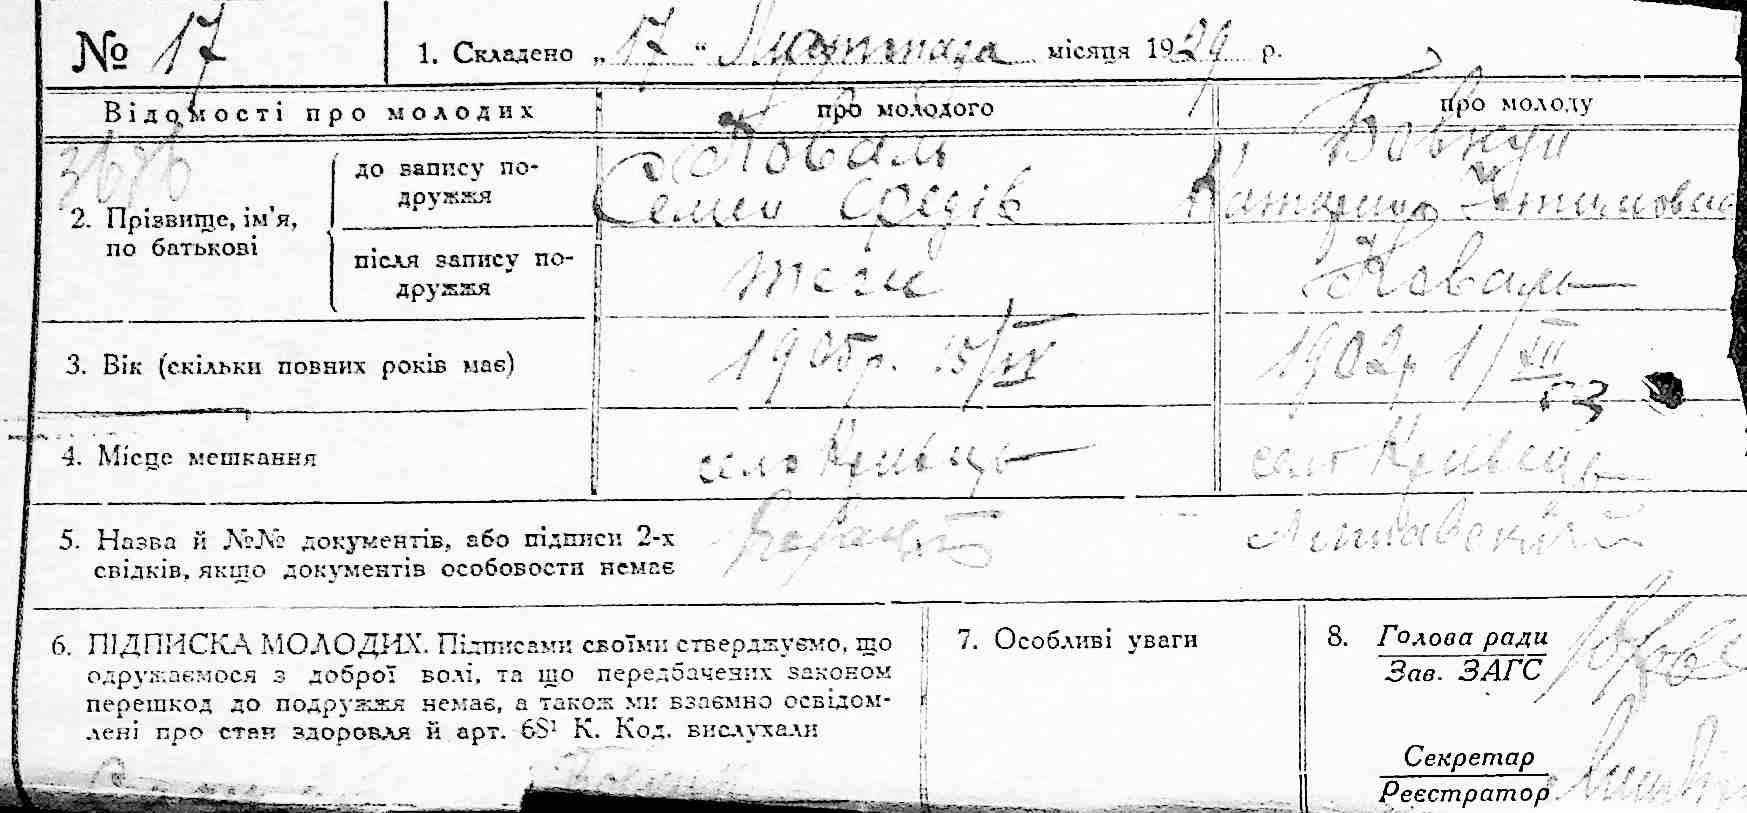 № 17
1. Складено „ 17 “ Листопада місяця 1929 р.
Відомості про молодих про молодого про молоду
2. Прізвище, ім’я, по батькові
до запису подружжя
Коваль
Семен
Бовкун
Катерина
після запису подружжя
Коваль
3. Вік (скільки повних років має) 1905р. 15/IV 1902р 1/XII
4. Місце мешкання село село
5. Назва й №№ документів, або підписи 2-х
свідків, якщо документів особовости немає
6. ПІДПИСКА МОЛОДИХ. Підписами своїми стверджуємо, що
одружаємося з доброї волі, та що передбачених законом
перешкод до подружжя немає, а також ми взаємно освідом-
лені про стан здоровля й арт. 68¹ К. Код. вислухали
7. Особливі уваги
8. Голова ради
Зав. ЗАГС
Секретар
Реєстратор